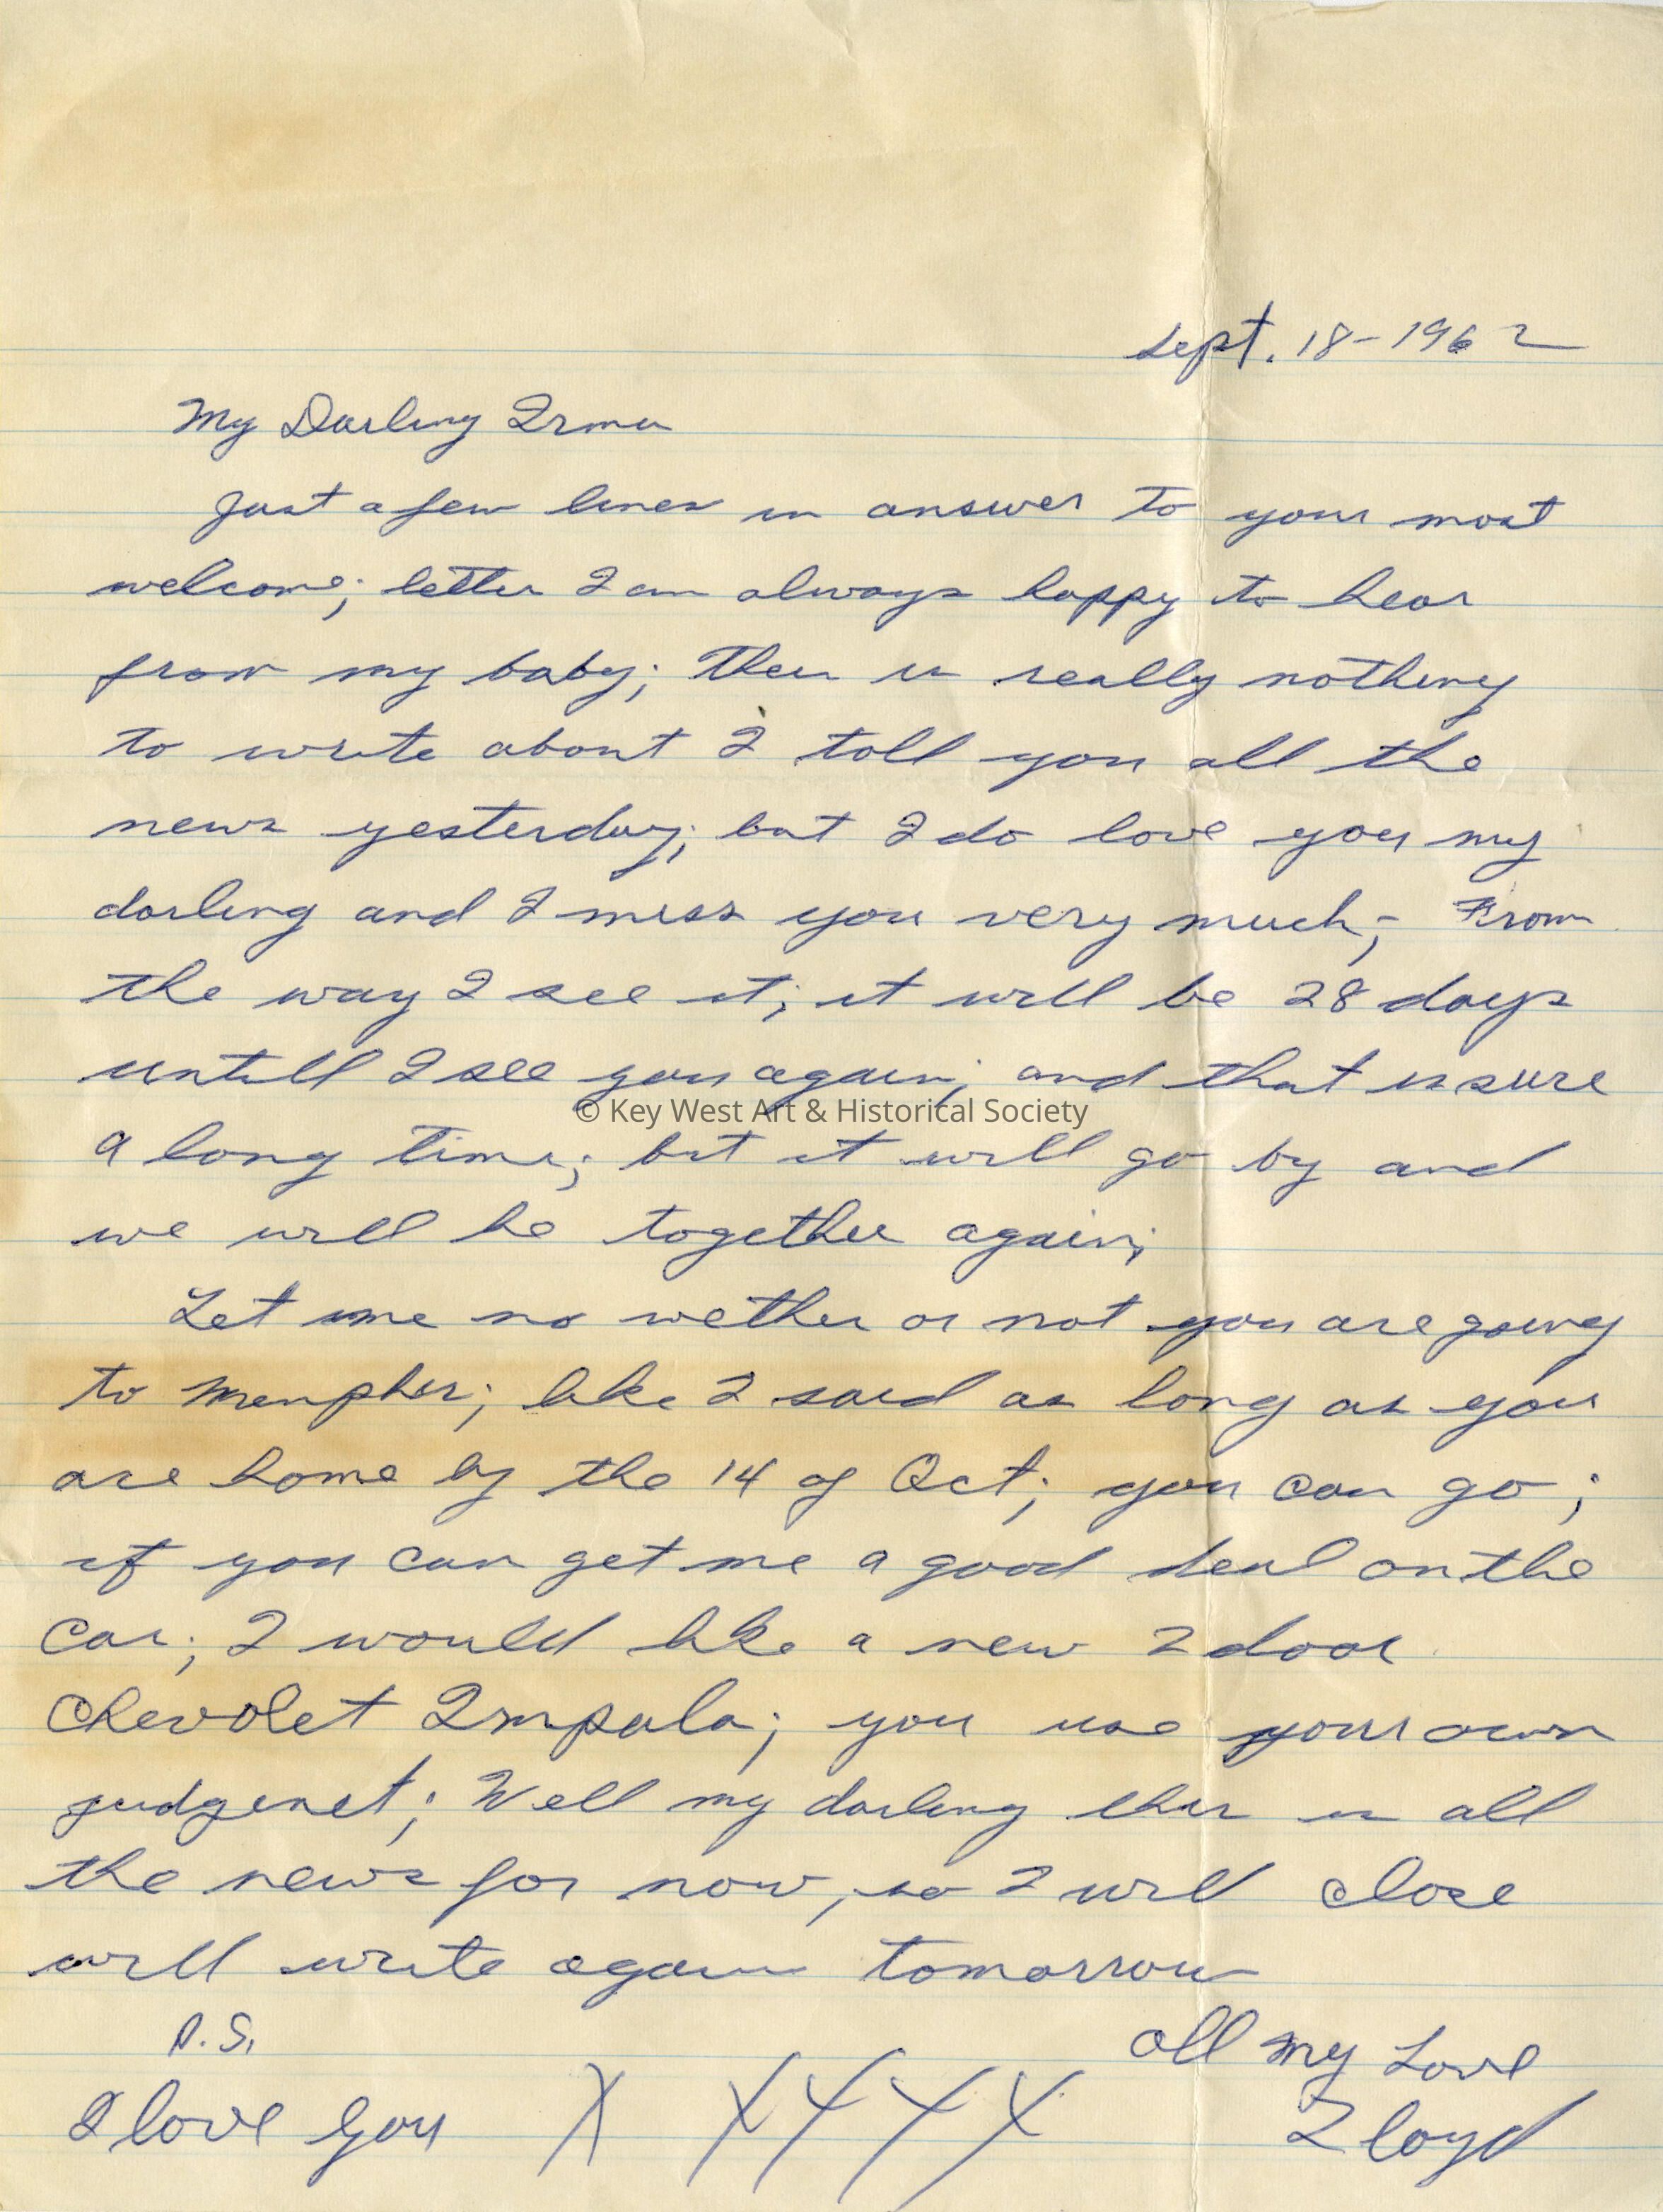 Sept. 18-1962
My Darling Irma
Just a few lines in answer to your most
welcome; letter I am always happy to hear
from my baby; Ther is really nothing
to write about I toll you all the
news yesterday; but I do love you my
darling and I miss you very much; From
the way I see it; it will be 28 days
untill I see you again; and that is sure
© Key West Art & Historical Society
a long time; but it will go by and
we will be together again;
Let me no wether or not you are going
to Memphis; like I said as long as you
are home by the 14 of Oct; you can go;
if you can get me a good deal on the
car; I would like a new 2 door
Chevolet Impala; you use your own
judgenet; Well my darling this is all
the news for now, so I will close
will write again tomorrow
P.S.
all my Love
I love you X XXXX
Lloyd